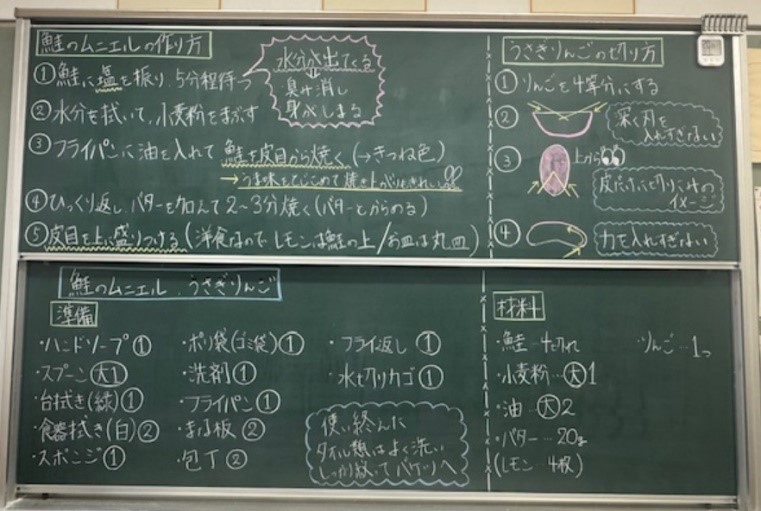 鮭のムニエルの作り方
①鮭に塩を振り、5分程待つ
水分が出てくる
臭み消し
身がしまる
②水分を拭いて、小麦粉をまぶす
③フライパンに油を入れて 鮭を皮目から焼く(→きつね色)
→うま味をとじこめて焼き上がりもきれい!!
④ひっくり返し、バターを加えて2〜3分焼く(バターとからめる)
⑤皮目を上に盛りつける(洋食なので レモンは鮭の上/お皿は丸皿)
うさぎりんごの切り方
①りんごを4等分にする
②
深く刃を
入れすぎない
③
上から
皮だけに切りこみの
イメージ
④
力を入れすぎない
鮭のムニエル、うさぎりんご
準備
・ハンドソープ①
・スプーン大1
・台拭き(緑)①
・食器拭き(白)②
・スポンジ①
・ポリ袋(ゴミ袋)①
・洗剤①
・フライパン①
・まな板②
・包丁②
・フライ返し①
・水切りカゴ①
使い終えた
タオル類はよく洗い
しっかり絞ってバケツへ
材料
・鮭…4切れ
・小麦粉…大1
・油…大2
・バター…20g
(レモン…4枚)
・りんご…1つ